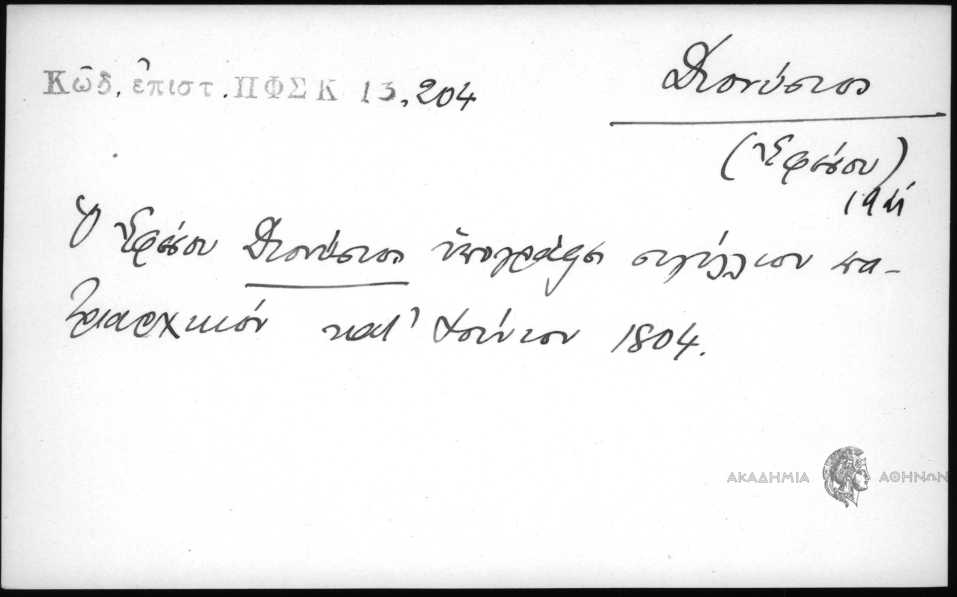 Κῶδ. ἐπιστ. ΠΦΣΚ 13, 204
Διονύσιος
(Ἐφέσου)
Ὁ Ἐφέσου Διονύσιος ὑπογράφει σιγίλλιον πα-
τριαρχικόν κατ' Ἰούνιον 1804.
ΑΚΑΔΗΜΙΑ ΑΘΗΝΩΝ